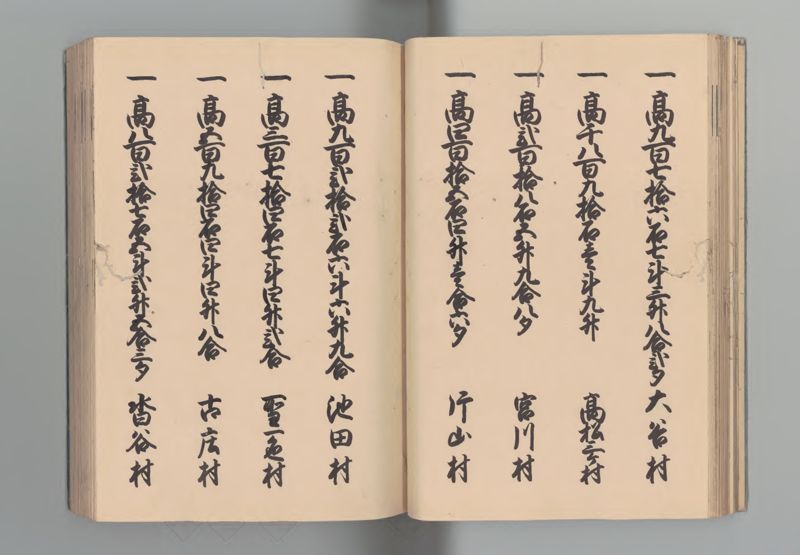 一 高九百七拾六石七斗三升八合弐夕 大谷村
一 高千八百九拾石壱斗九升 高松村
一 高弐百拾八石五升九合八夕 宮川村
一 高四百拾五石四升壱合六夕 片山村
一 高九百弐拾弐石六斗六升九合 池田村
一 高三百七拾四石七斗四升弐合 聖一色村
一 高五百九拾四石四斗四升八合 古庄村
一 高八百弐拾七石五斗弐升五合三夕 沓谷村